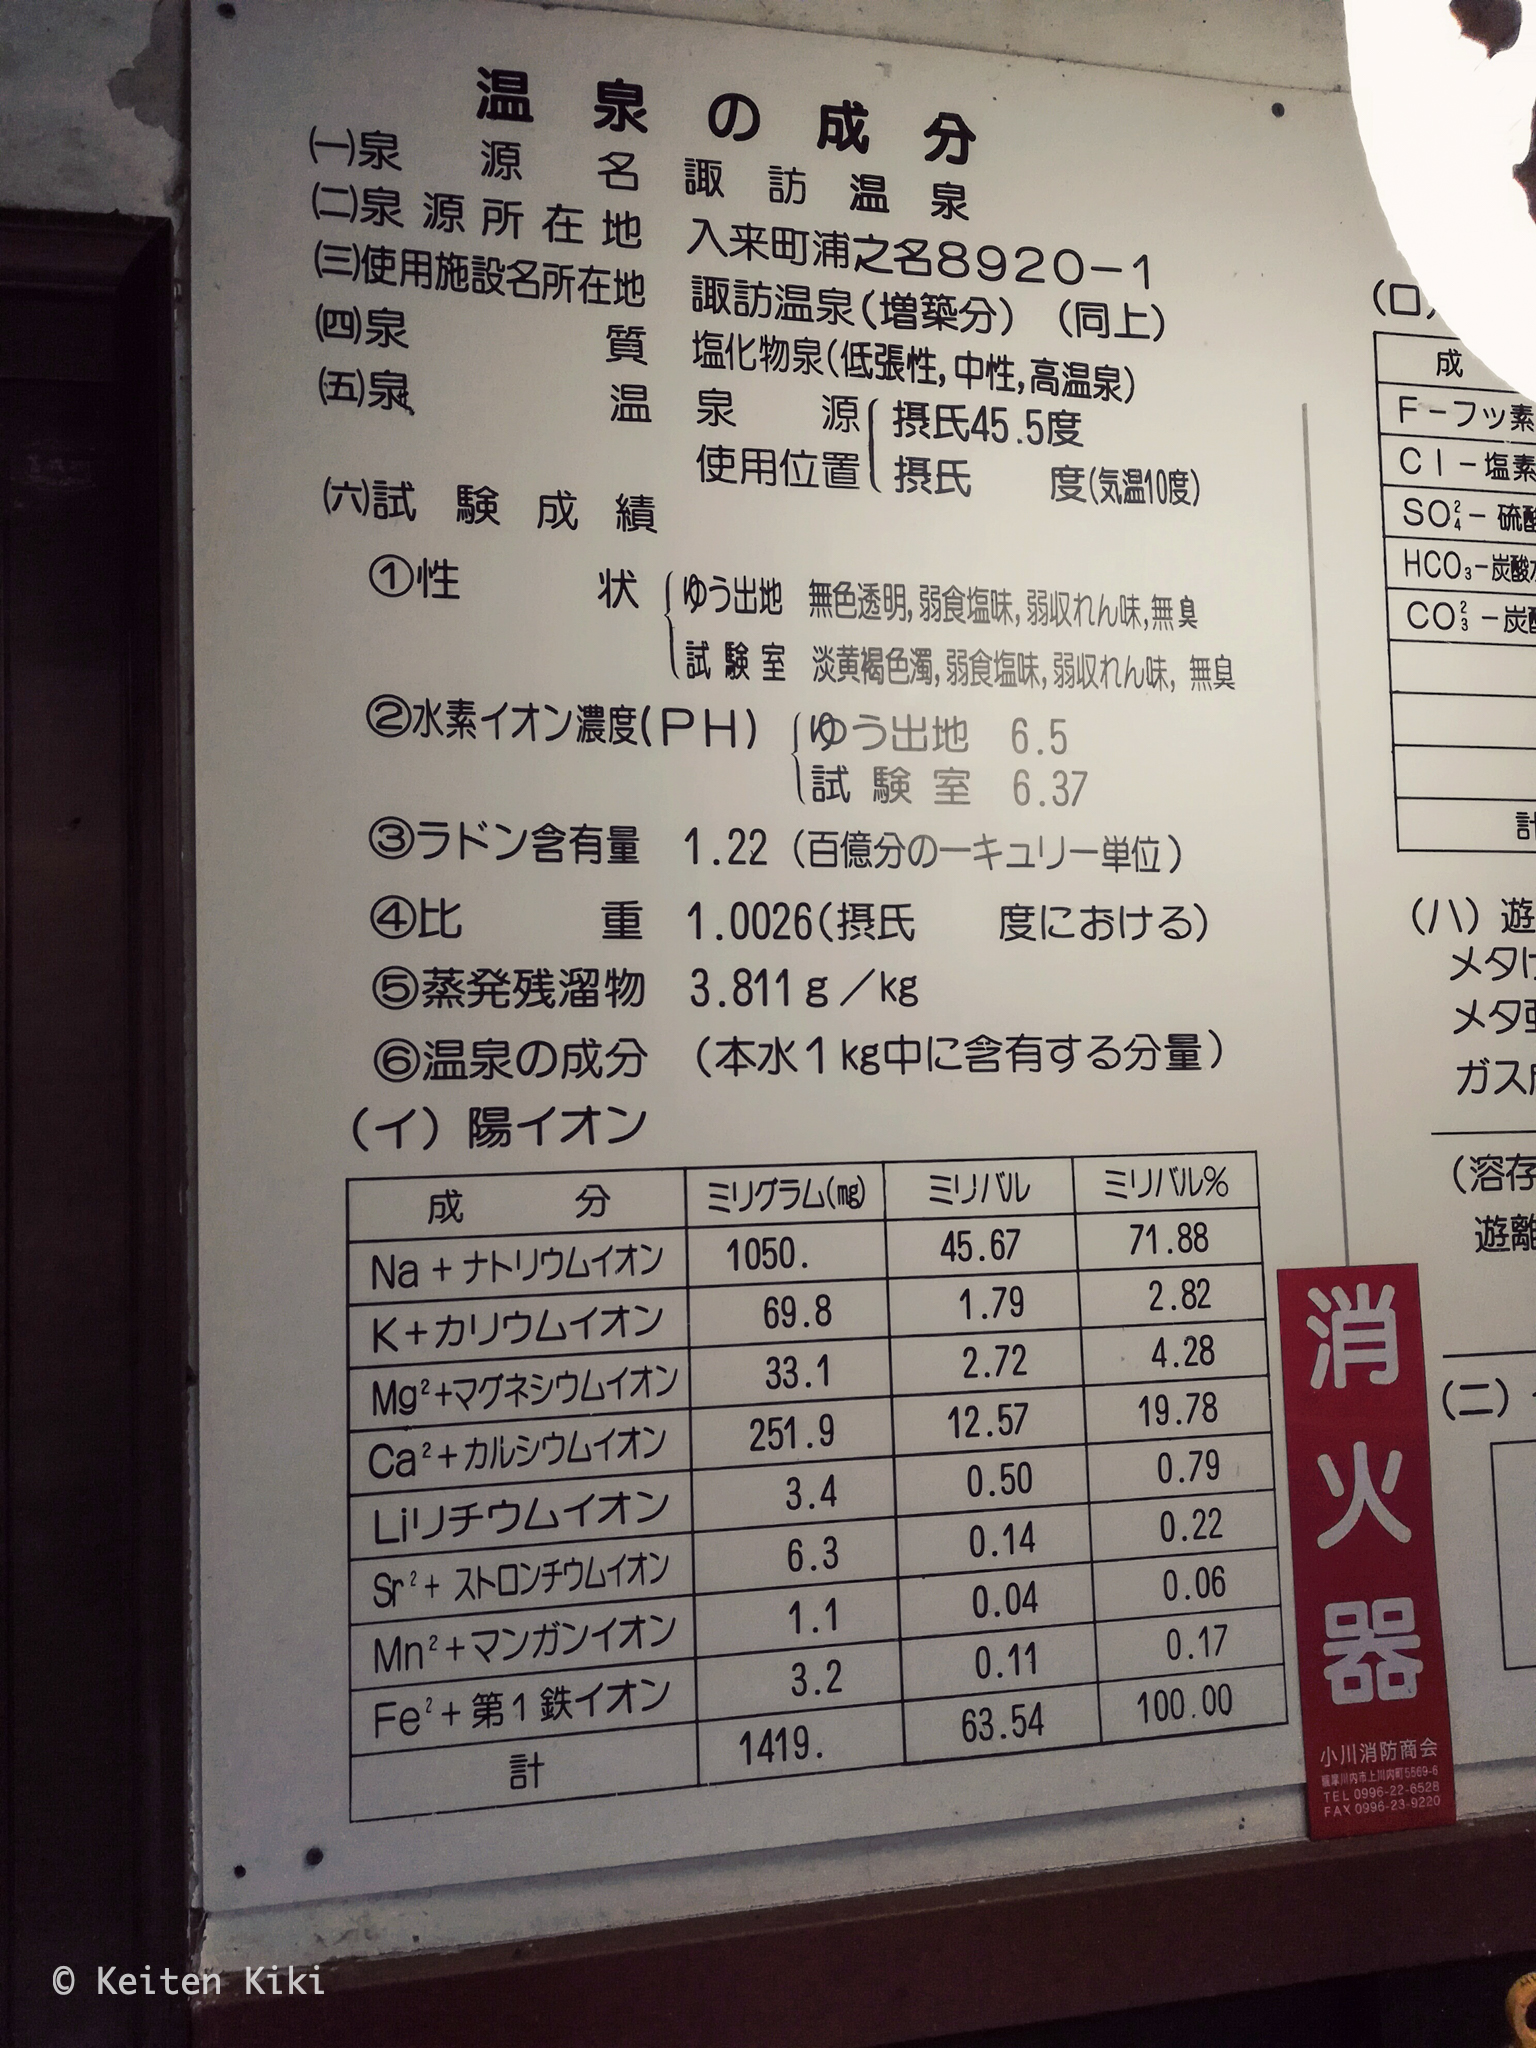 温泉の成分
㈠泉源名 諏訪温泉
㈡泉源所在地 入来町浦之名8920-1
㈢使用施設名所在地 諏訪温泉(増築分) (同上)
㈣泉質 塩化物泉(低張性,中性,高温泉)
㈤泉温 泉源 摂氏45.5度
使用位置 摂氏 度(気温10度)
㈥試験成績
①性状 ゆう出地 無色透明,弱食塩味,弱収れん味,無臭
試験室 淡黄褐色濁,弱食塩味,弱収れん味,無臭
②水素イオン濃度(PH) ゆう出地 6.5
試験室 6.37
③ラドン含有量 1.22 (百億分の一キュリー単位)
④比重 1.0026(摂氏 度における)
⑤蒸発残溜物 3.811g/kg
⑥温泉の成分 (本水1kg中に含有する分量)
(イ)陽イオン
成分 ミリグラム(mg) ミリバル ミリバル%
Na+ナトリウムイオン 1050. 45.67 71.88
K+カリウムイオン 69.8 1.79 2.82
Mg²+マグネシウムイオン 33.1 2.72 4.28
Ca²+カルシウムイオン 251.9 12.57 19.78
Liリチウムイオン 3.4 0.50 0.79
Sr²+ストロンチウムイオン 6.3 0.14 0.22
Mn²+マンガンイオン 1.1 0.04 0.06
Fe²+第1鉄イオン 3.2 0.11 0.17
計 1419. 63.54 100.00
(ロ)
成
F-フッ素
Cl-塩素
SO₄²-硫酸
HCO₃-炭酸水
CO₃²-炭酸
計
(ハ)遊
メタけ
メタ亜
ガス
(溶存
遊離
(ニ)
消火器
小川消防商会
薩摩川内市上川内町5569-6
TEL 0996-22-6528
FAX 0996-23-9220
© Keiten Kiki